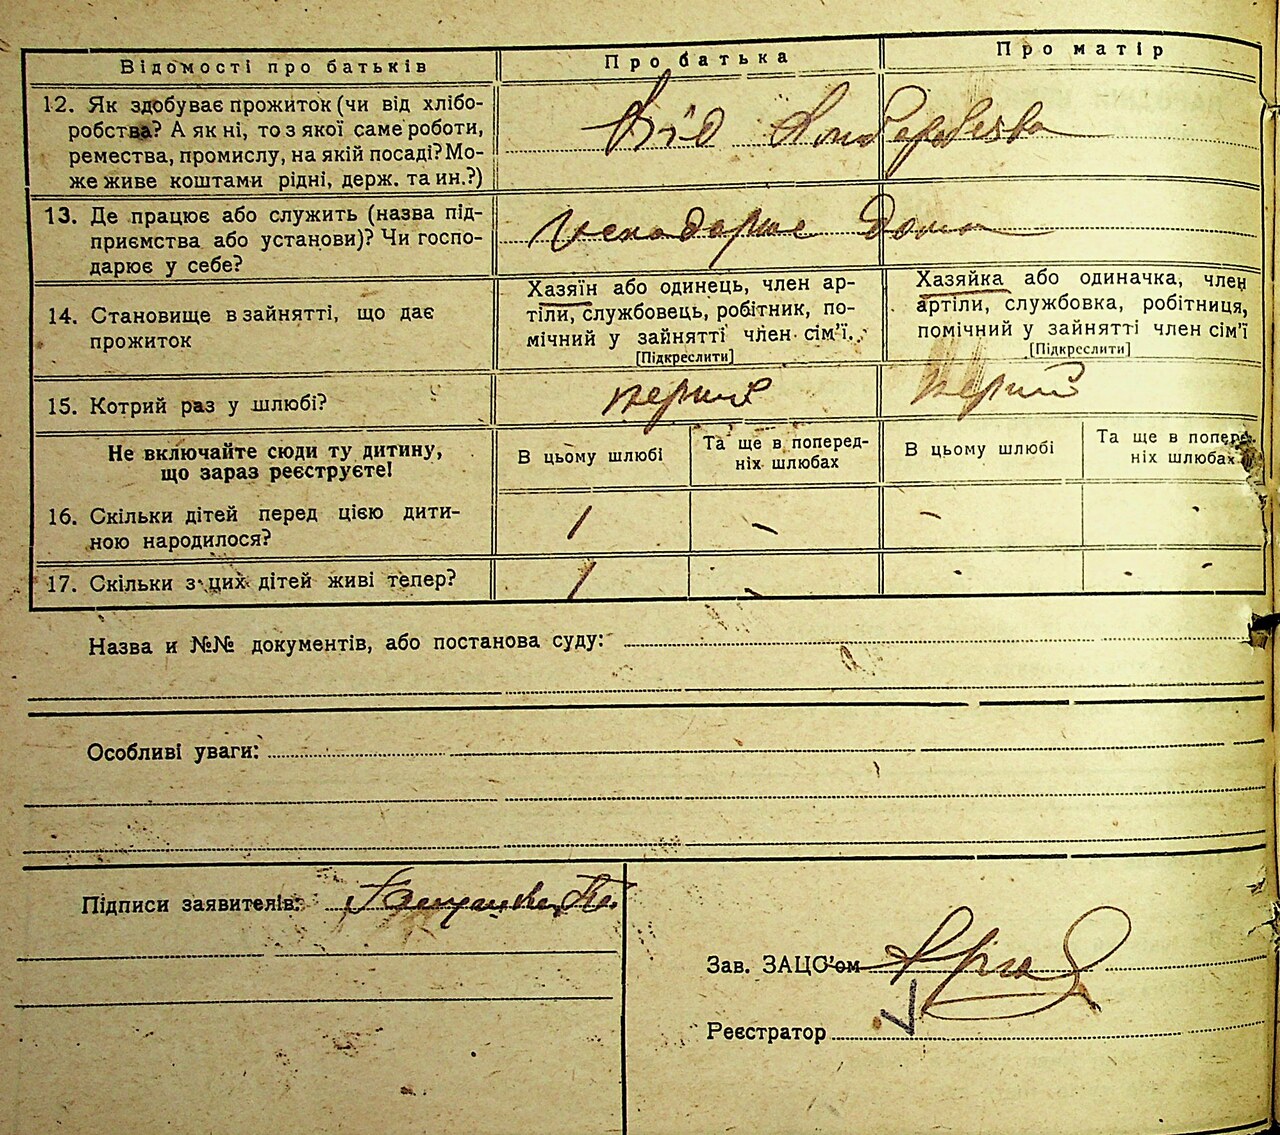 Відомості про батьків
Про батька
Про матір
12. Як здобуває прожиток (чи від хлібо-
робства? А як ні, то з якої саме роботи,
ремества, промислу, на якій посаді? Мо-
же живе коштами рідні, держ. та ин.?)
Від хліборобства
13. Де працює або служить (назва під-
приємства або установи)? Чи госпо-
дарює у себе?
господарює дома
14. Становище в зайнятті, що дає
прожиток
Хазяїн або одинець, член ар-
тіли, службовець, робітник, по-
мічний у зайнятті член сім'ї.
[Підкреслити]
Хазяйка або одиначка, член
артіли, службовка, робітниця,
помічний у зайнятті член сім'ї
[Підкреслити]
15. Котрий раз у шлюбі?
перший
перший
Не включайте сюди ту дитину,
що зараз реєструєте!
В цьому шлюбі
Та ще в поперед-
ніх шлюбах
В цьому шлюбі
Та ще в поперед-
ніх шлюбах
16. Скільки дітей перед цією дити-
ною народилося?
1 - - -
17. Скільки з цих дітей живі тепер?
1 - - - -
Назва и №№ документів, або постанова суду:
Особливі уваги:
Підписи заявителів:
Зав. ЗАЦС'ом
Реєстратор